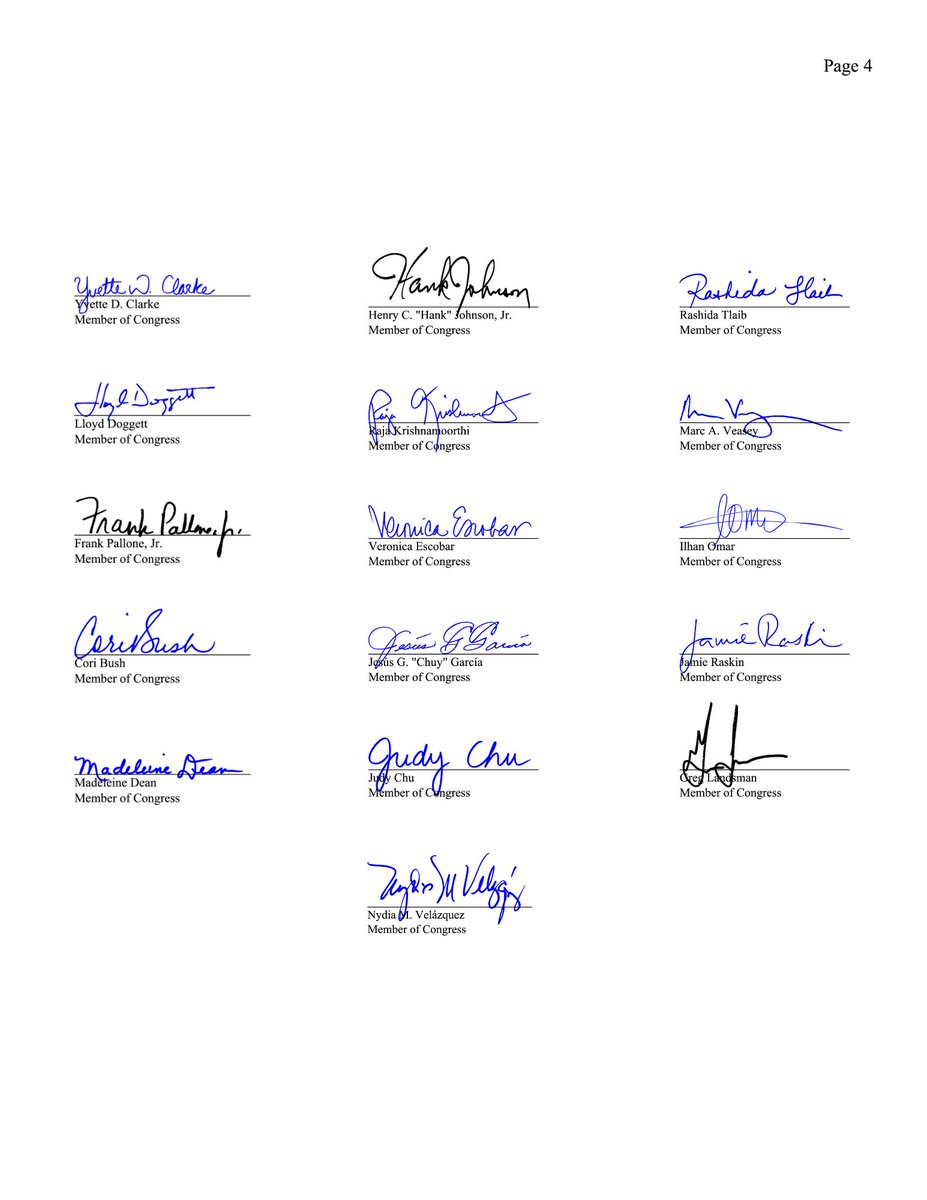 Page 4
Yvette D. Clarke
Yvette D. Clarke
Member of Congress
Hank Johnson
Henry C. "Hank" Johnson, Jr.
Member of Congress
Rashida Tlaib
Rashida Tlaib
Member of Congress
Lloyd Doggett
Lloyd Doggett
Member of Congress
Raja Krishnamoorthi
Member of Congress
Marc A. Veasey
Member of Congress
Frank Pallone, Jr.
Frank Pallone, Jr.
Member of Congress
Veronica Escobar
Veronica Escobar
Member of Congress
Ilhan Omar
Member of Congress
Cori Bush
Cori Bush
Member of Congress
Jesús G García
Jesús G. "Chuy" García
Member of Congress
Jamie Raskin
Jamie Raskin
Member of Congress
Madeleine Dean
Madeleine Dean
Member of Congress
Judy Chu
Judy Chu
Member of Congress
Greg Landsman
Member of Congress
Nydia M. Velázquez
Member of Congress